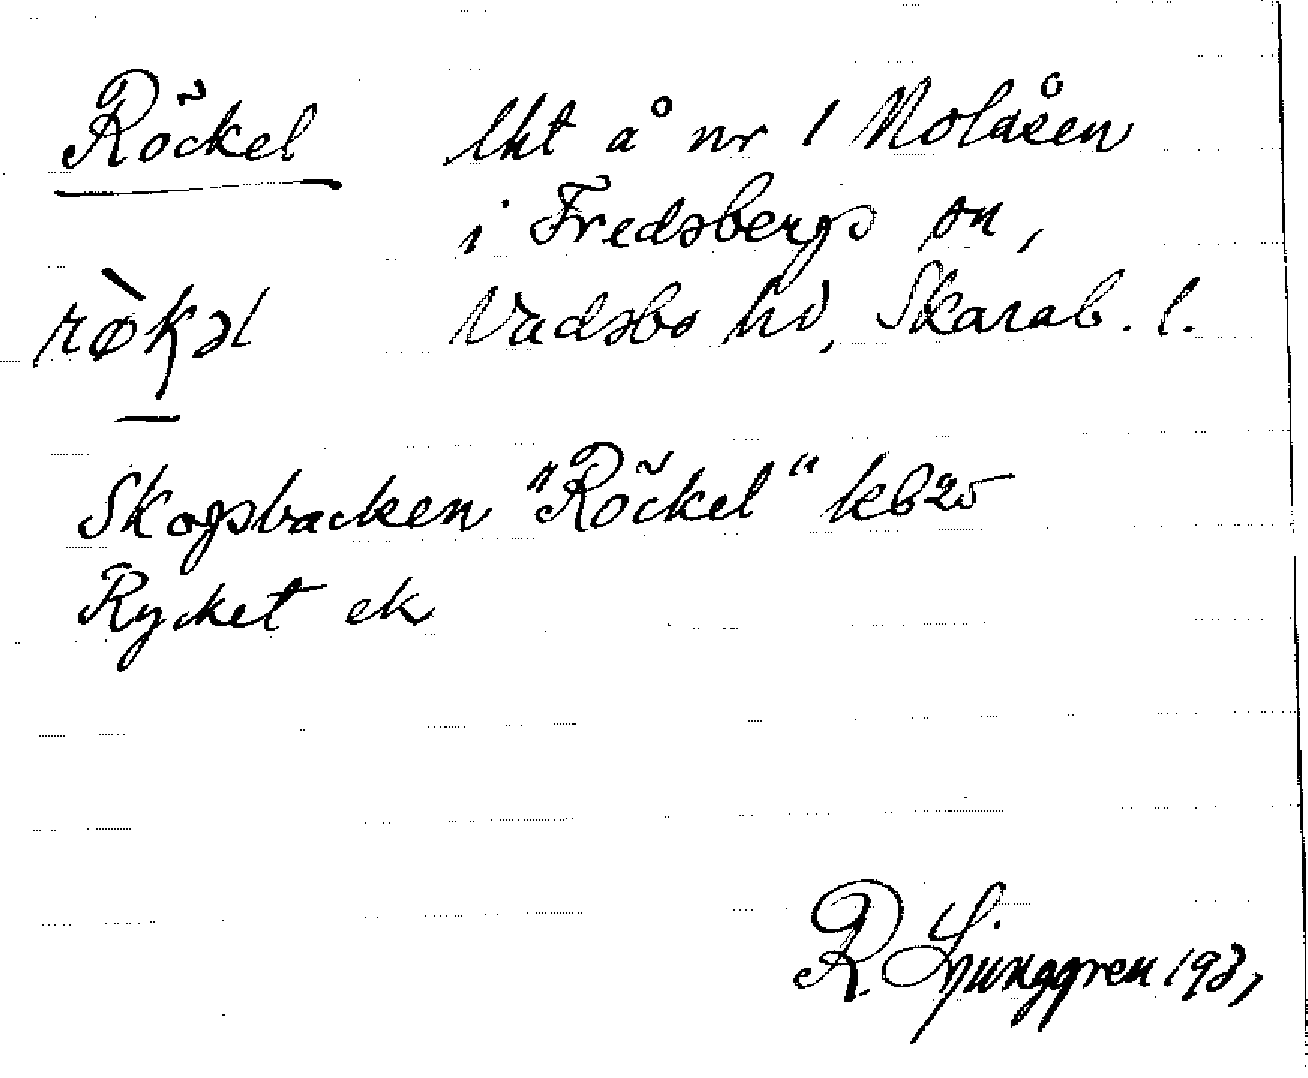 Röckel lht å nr 1 Nolåsen
i Fredsbergs sn,
rø̀kəl Vadsbo hd, Skarab. l.
Skogsbacken "Röckel" kb25
Rycket ek
R. Ljunggren 193,